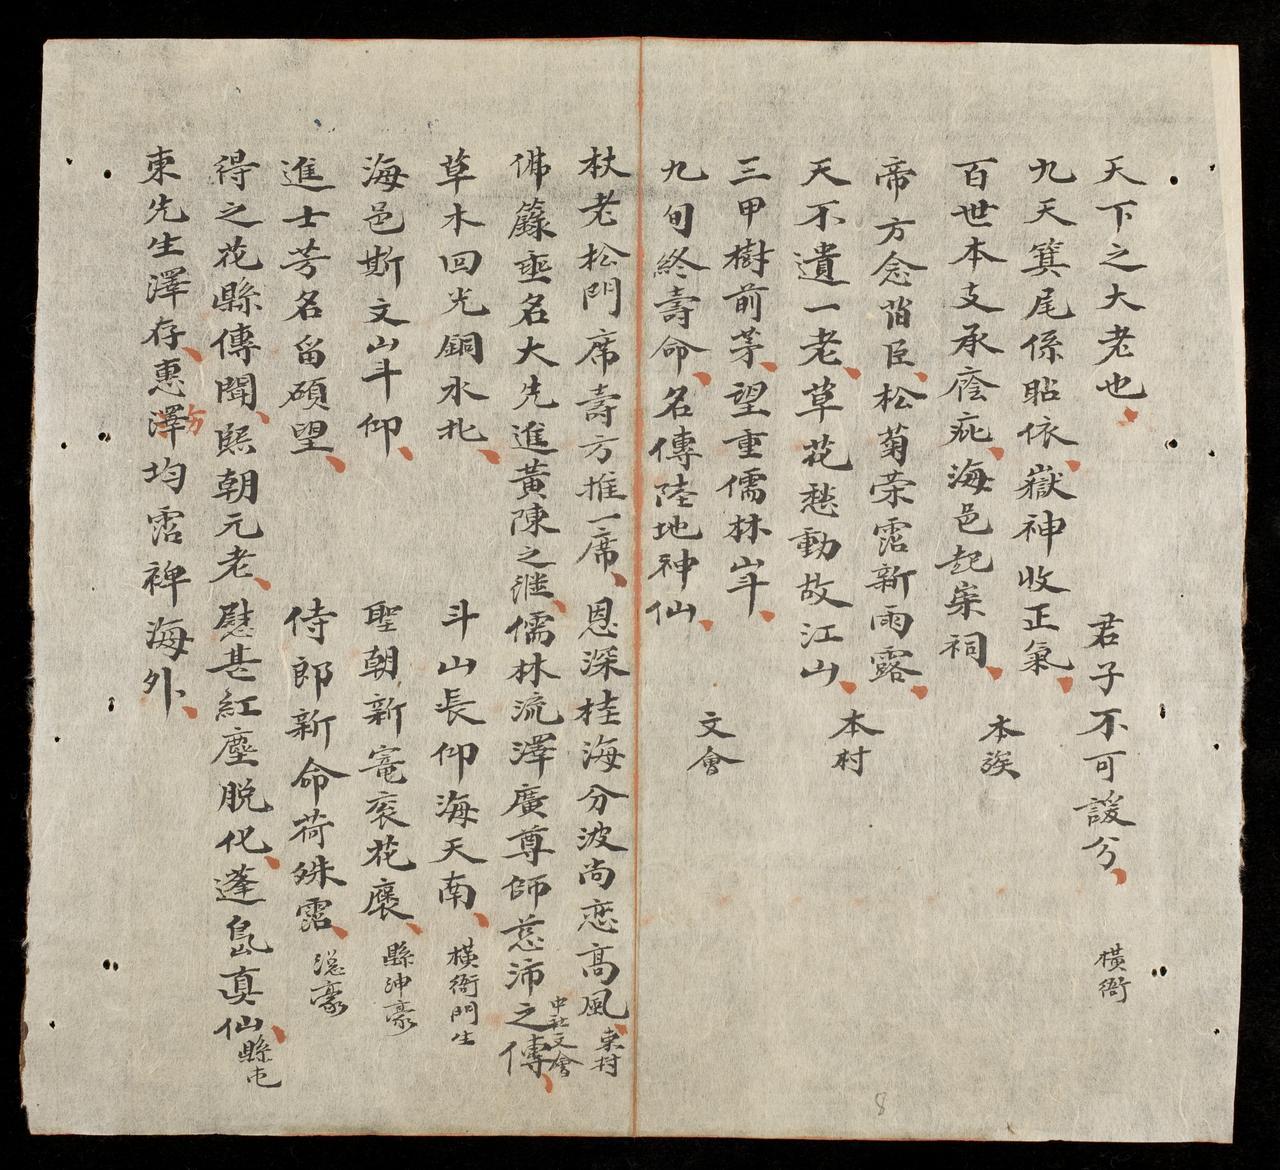 天下之大老也 君子不可諼兮 橫衙
九天箕尾係貼依嶽神收正氣
百世本支承廕庇海邑起崇祠 本族
帝方念耆臣松菊荣霑新雨露
天不遺一老草花愁動故江山 本村
三甲樹前茅望重儒林山斗
九旬終壽命名傳陸地神仙 文會
杖老松門席壽方推一席恩深桂海分波尚恋高風 東村
佛籙垂名大先進黃陳之継儒林流澤廣尊師慈沛之傳 中社文會
草木回光銅水北 斗山長仰海天南 橫衙門生
海邑斯文山斗仰 聖朝新寵衮花褒 縣沖豪
進士芳名留碩望 侍郎新命荷殊霑 総豪
得之花縣傳聞熙朝元老慰甚紅塵脱化蓬島真仙 縣屯
東先生澤存惠澤方均霑裨海外
8